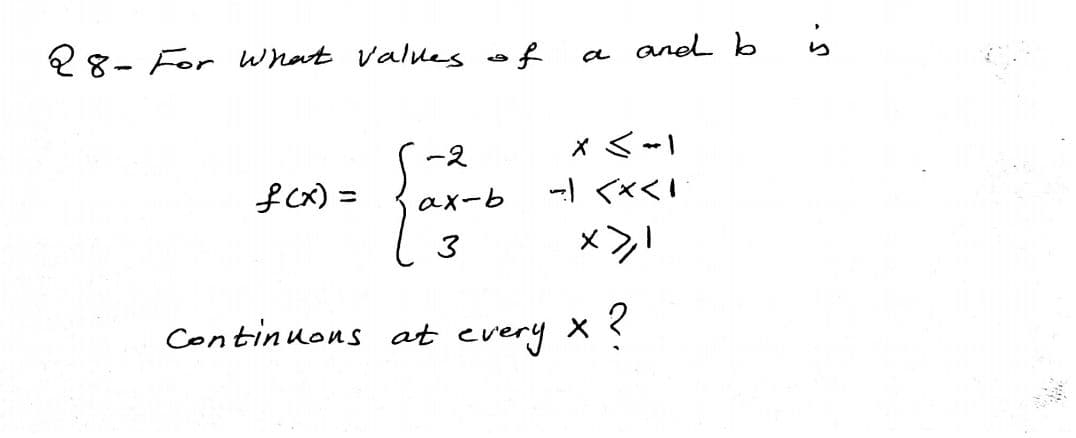 Q8- For What Values of a and b is
f(x) = { -2 x ≤ -1
ax-b -1 <x<1
3 x ≥ 1
Continuous at every x ?